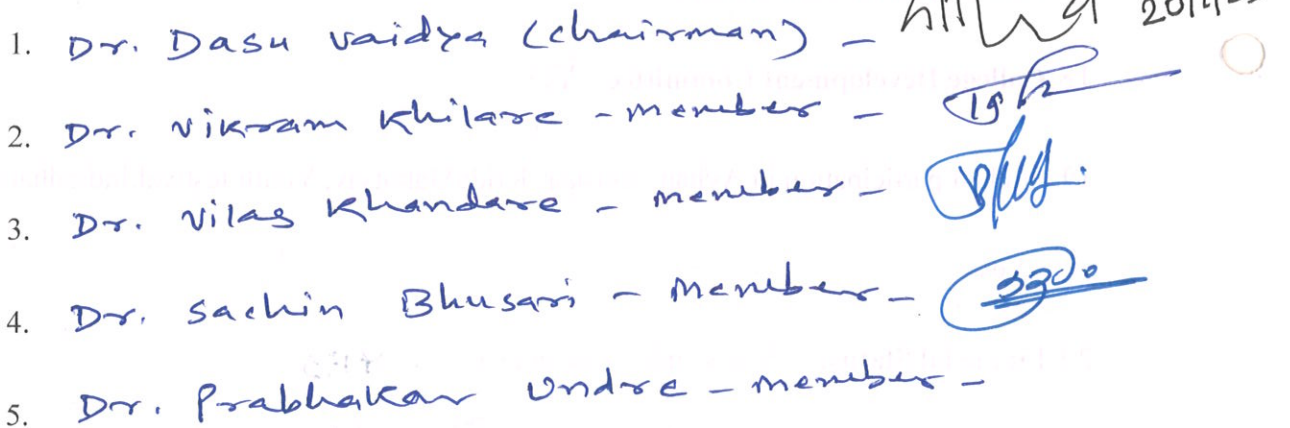 1. Dr. Dasu vaidya (chairman) -
2. Dr. vikram Khilare - member -
3. Dr. vilas Khandare - member -
4. Dr. sachin Bhusari - member -
5. Dr. Prabhakar Undre - member -